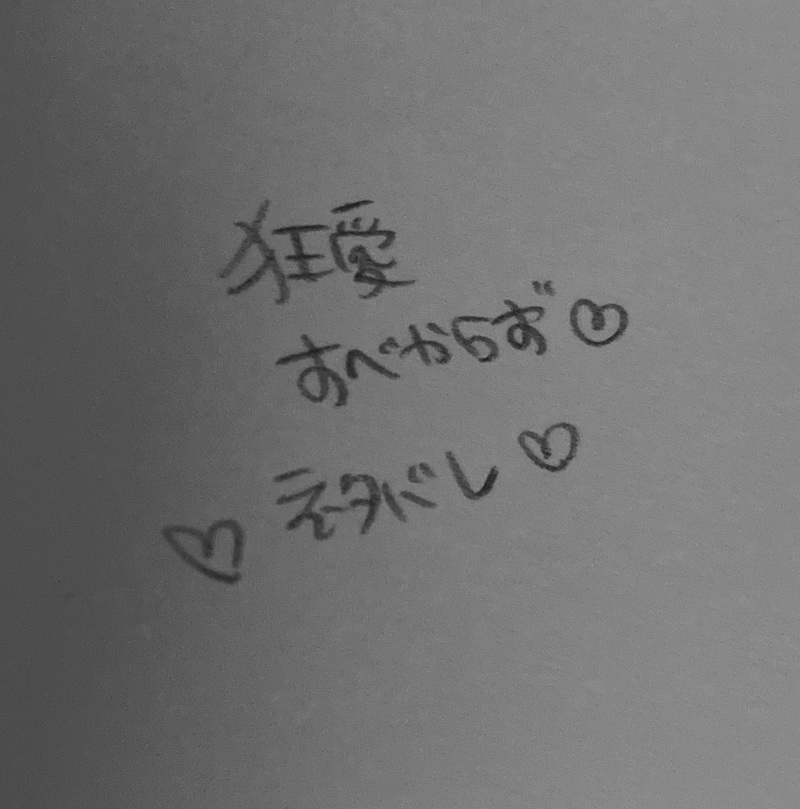 狂愛
すべからず♡
♡ネタバレ♡